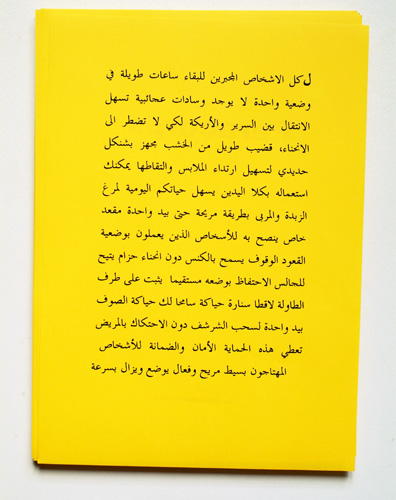 لكل الاشخاص المجبرين للبقاء ساعات طويلة في
وضعية واحدة لا يوجد وسادات عجائبية تسهل
الانتقال بين السرير والأريكة لكي لا تضطر الى
الانحناء، قضيب طويل من الخشب مجهز بشنكل
حديدي لتسهيل ارتداء الملابس والتقاطها يمكنك
استعماله بكلا اليدين يسهل حياتكم اليومية لمرغ
الزبدة والمربى بطريقة مريحة حتى بيد واحدة مقعد
خاص ينصح به للأسخاص الذين يعملون بوضعية
القعود الوقوف يسمح بالكنس دون انحناء حزام يتيح
للجالس الاحتفاظ بوضعه مستقيما يثبت على طرف
الطاولة لاقطا سنارة حياكة سامحا لك حياكة الصوف
بيد واحدة لسحب الشرشف دون الاحتكاك بالمريض
تعطي هذه الحماية الأمان والضمانة للأشخاص
المهتاجون بسيط مريح وفعال يوضع ويزال بسرعة